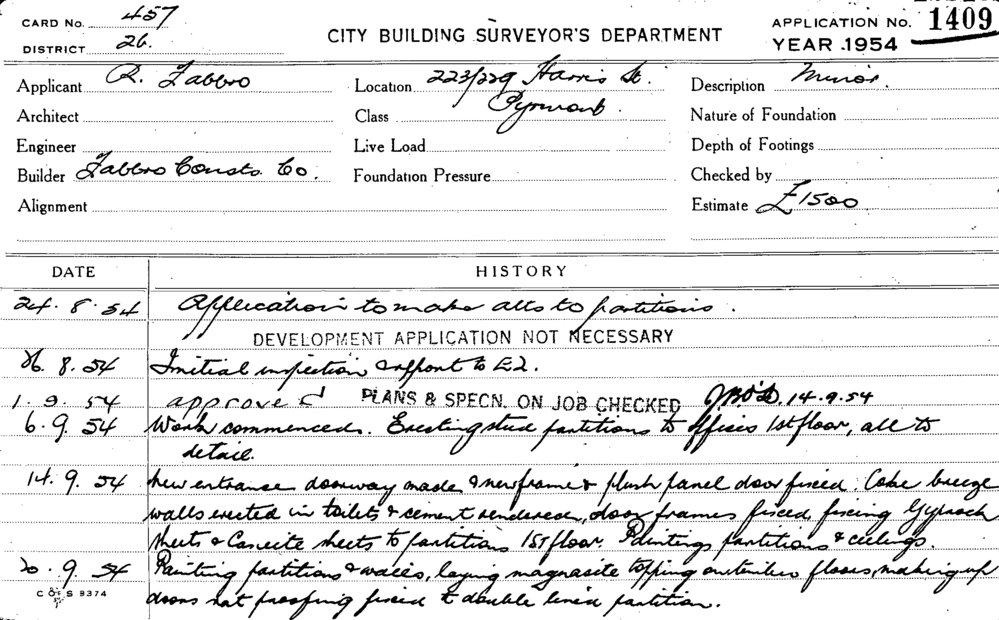 CARD No. 457
DISTRICT 26.
CITY BUILDING SURVEYOR'S DEPARTMENT
APPLICATION No. 1409
YEAR 1954
Applicant R. Fabbro
Location 223/229 Harris St.
Description Minor
Architect
Class Pyrmont.
Nature of Foundation
Engineer
Live Load
Depth of Footings
Builder Fabbro Consts. Co.
Foundation Pressure
Checked by
Alignment
Estimate £1500
DATE HISTORY
24.8.54 Application to make alts to partitions.
DEVELOPMENT APPLICATION NOT NECESSARY
26.8.54 Initial inspection & report to E2.
1.9.54 approved PLANS & SPECN. ON JOB CHECKED 14.9.54
6.9.54 Work commenced. Erecting stud partitions to offices 1st floor, all to
detail.
14.9.54 New entrance doorway made & new frame & flush panel door fixed. Coke breeze
walls erected in toilets & cement rendered, door frames fixed, fixing Gyprock
sheets & Caneite sheets to partitions 1st floor. Painting partitions & ceilings.
20.9.54 Painting partitions & walls, laying magnasite topping on timber floors, making up
doors rat proofing fixed to double lined partition.
C of S 9374